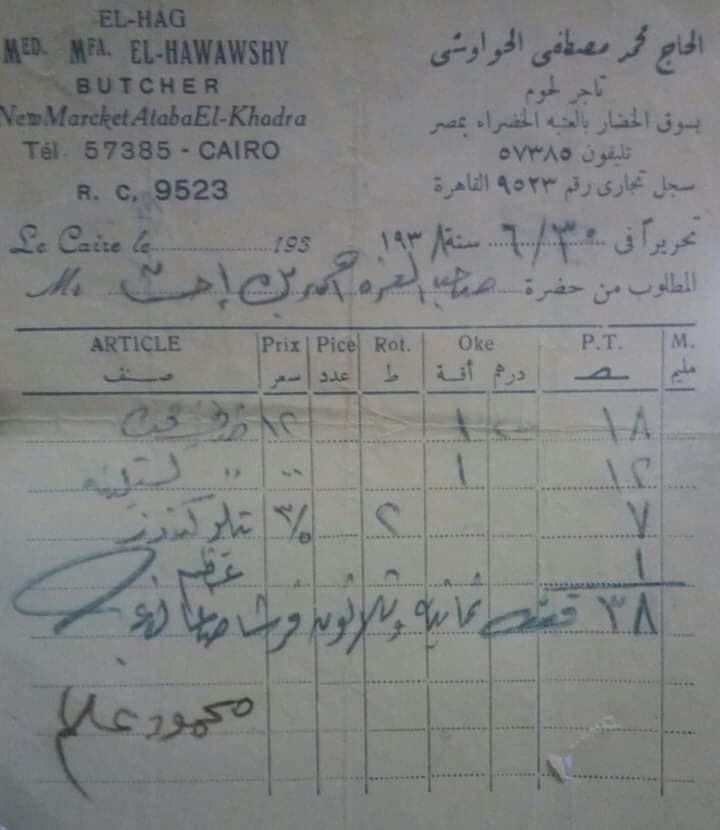 EL-HAG
MED. MFA. EL-HAWAWSHY
BUTCHER
New Marcket Ataba El-Khadra
Tél. 57385 - CAIRO
R. C. 9523
الحاج محمد مصطفى الحواوشى
تاجر لحوم
بسوق الخضار بالعتبه الخضراء بمصر
تليفون ٥٧٣٨٥
سجل تجارى رقم ٩٥٢٣ القاهرة
Le Caire le 193
تحريراً فى ٣٠/٦ سنة ١٩٣٨
المطلوب من حضرة صاحب العزه احمد بك Mr
ARTICLE Prix Pice Rot. Oke P.T. M.
صنف سعر عدد ط أقة درهم صـ مليم
١٢ ١ ٢٠٠ ١٨
" " ١ ١٢
٣/٥ ٢ ٧
عظم ١
٣٨ فقط ثمانية وثلاثون قرشا صاغا
محمود علام